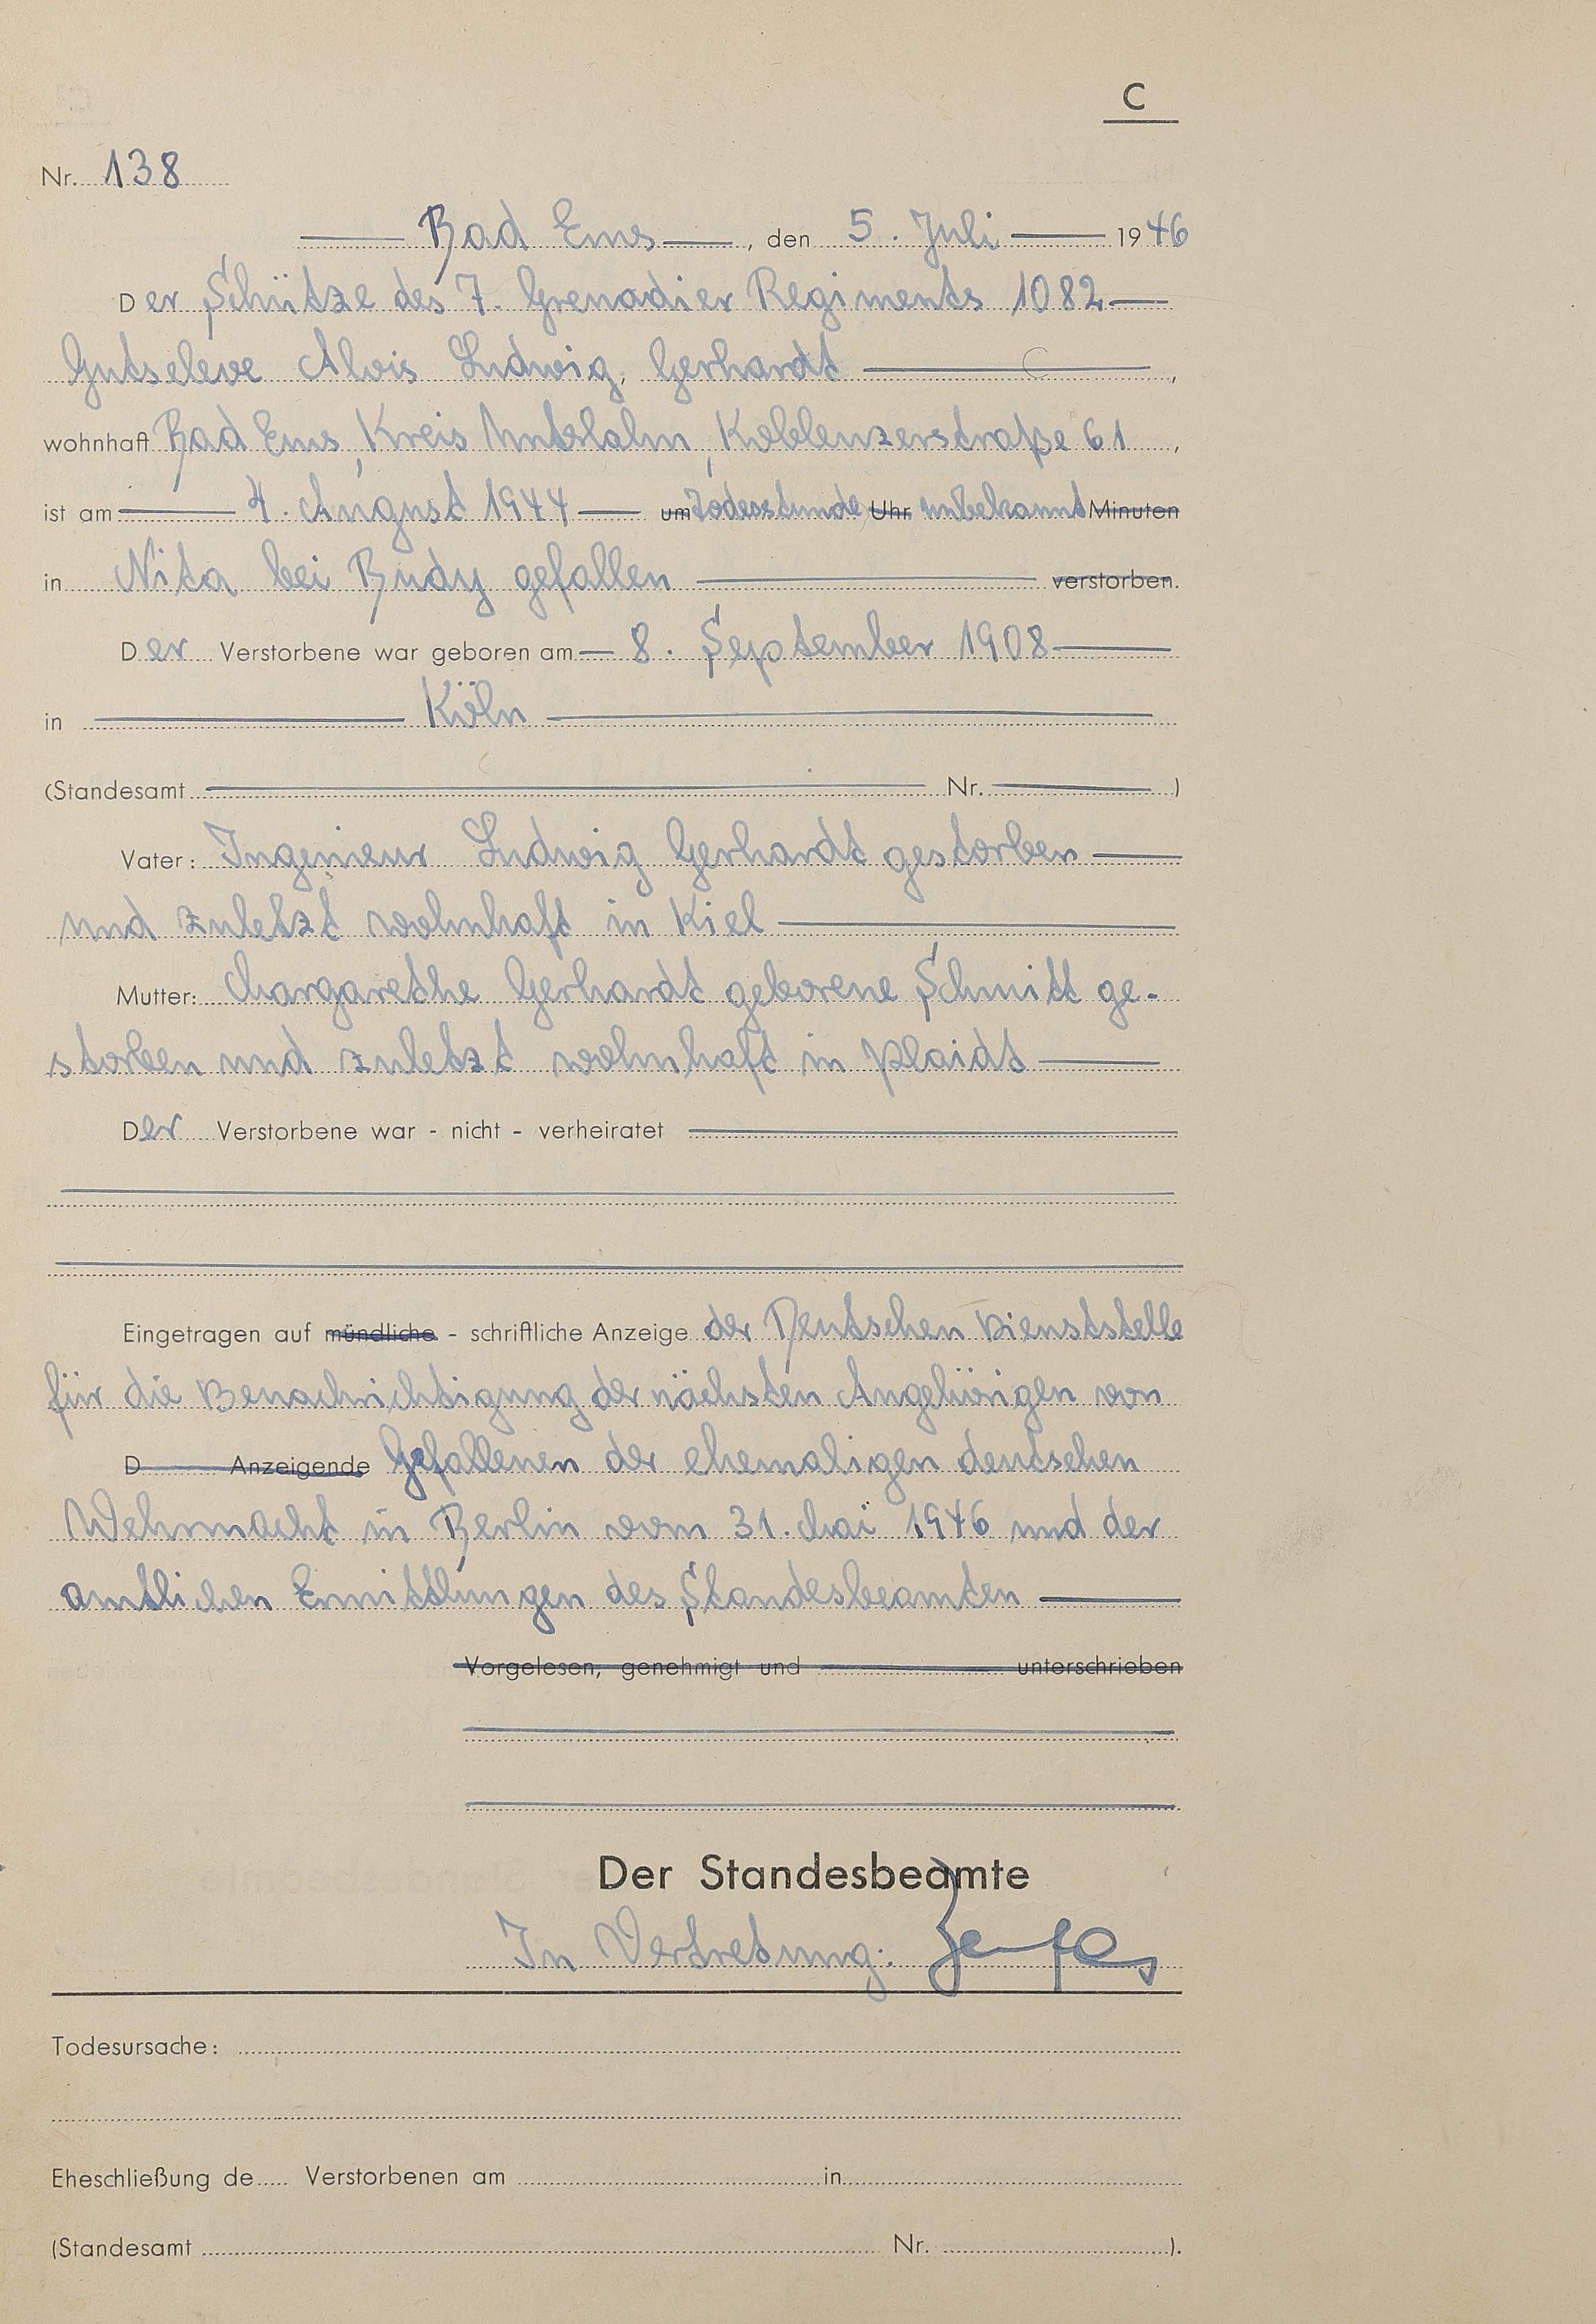 C
Nr. 138
Bad Ems, den 5. Juli 1946
Der Schütze des 7. Grenadier Regiments 1082
Gutseleve Alois Ludwig, Gerhardt,
wohnhaft Bad Ems, Kreis Unterlahn, Koblenzerstraße 61,
ist am 4. August 1944 um Todesstunde Uhr unbekannt Minuten
in Nita bei Rudy gefallen verstorben.
Der Verstorbene war geboren am 8. September 1908
in Köln
(Standesamt Nr. )
Vater: Ingenieur Ludwig Gerhardt gestorben
und zuletzt wohnhaft in Kiel
Mutter: Margarethe Gerhardt geborene Schmitt ge-
storben und zuletzt wohnhaft in Plaidt
Der Verstorbene war - nicht - verheiratet
Eingetragen auf mündliche - schriftliche Anzeige der Deutschen Dienststelle
für die Benachrichtigung der nächsten Angehörigen von
D Anzeigende Gefallenen der ehemaligen deutschen
Wehrmacht in Berlin vom 31. Mai 1946 und der
amtlichen Ermittlungen des Standesbeamten
Vorgelesen, genehmigt und unterschrieben
Der Standesbeamte
In Vertretung:
Todesursache:
Eheschließung de Verstorbenen am in
(Standesamt Nr. ).